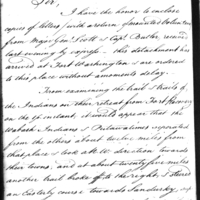 Sir,
I have the honor to enclose
copies of letters, (with a return of
from Major Gen. Scott & Capt. Butler, received
last evening by express. This detachment has
arrived at Fort Washington & are ordered
to this place without a moments delay.
From examining the trail & trails of
the Indians on their retreat from Fort
on the inst. it would appear that the
Wabash Indians & Delawares seperated
from the others about twelve miles from
that place & took the direction towards
their towns, and at about twenty five miles
another trail broke off to the right, & steered
an Easterly course towards Sandusky